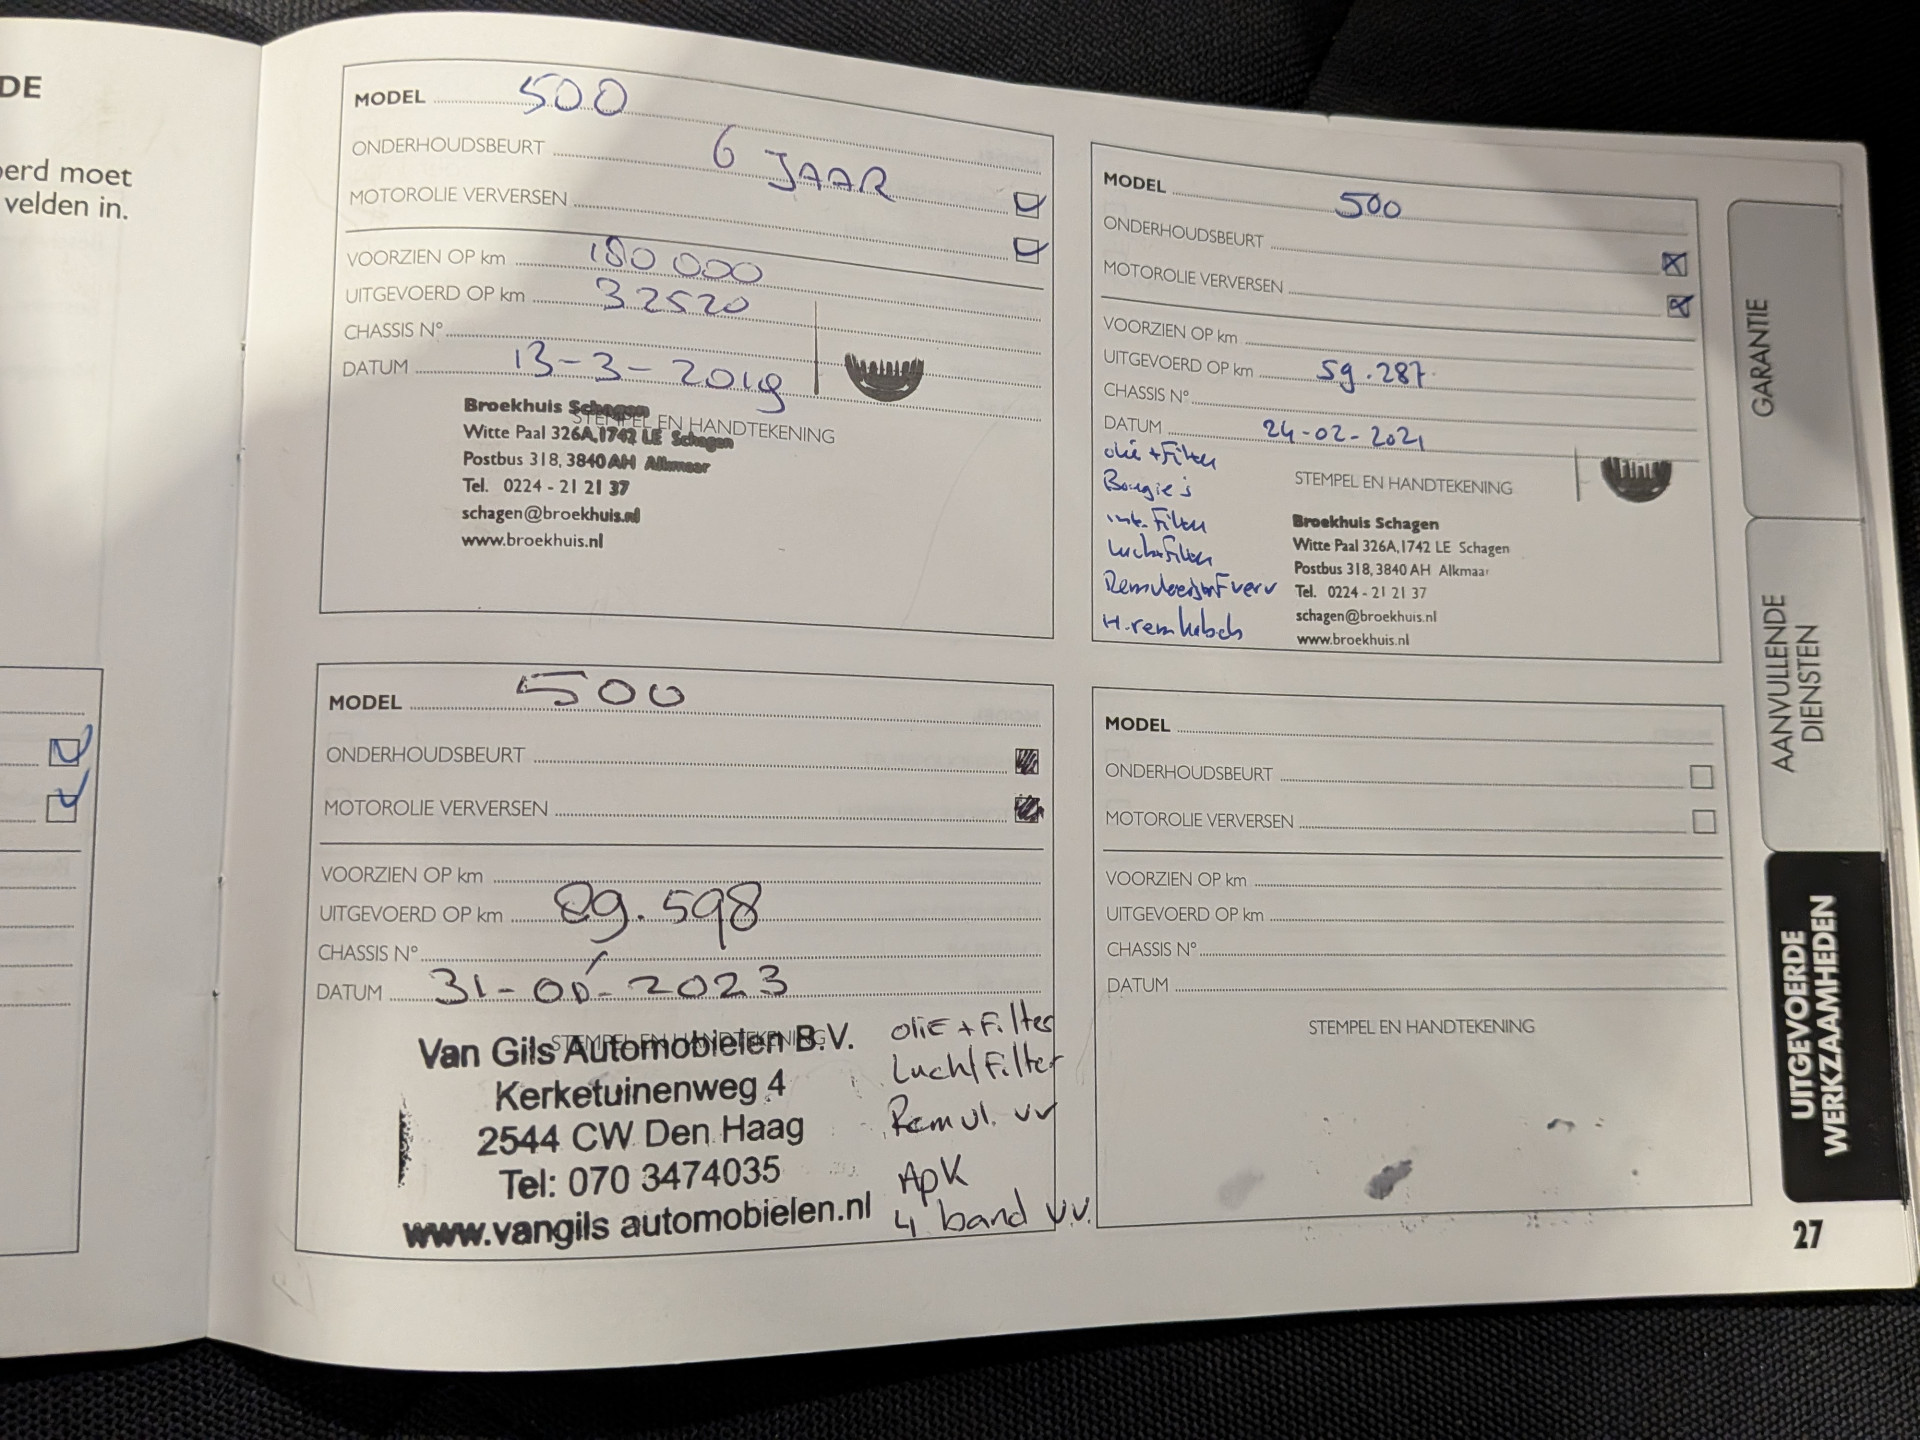 DE
erd moet
velden in.
MODEL 500
ONDERHOUDSBEURT 6 JAAR
MOTOROLIE VERVERSEN
VOORZIEN OP km 180 000
UITGEVOERD OP km 32520
CHASSIS N°
DATUM 13-3-2019
STEMPEL EN HANDTEKENING
Broekhuis Schagen
Witte Paal 326A, 1742 LE Schagen
Postbus 318, 3840 AH Alkmaar
Tel. 0224 - 21 21 37
schagen@broekhuis.nl
www.broekhuis.nl
MODEL 500
ONDERHOUDSBEURT
MOTOROLIE VERVERSEN
VOORZIEN OP km
UITGEVOERD OP km 59.287
CHASSIS N°
DATUM 24-02-2021
olie + Filter
Bougie's
int. Filter
luchtfilter
Remvloeistof verv
H. rem
STEMPEL EN HANDTEKENING
Broekhuis Schagen
Witte Paal 326A, 1742 LE Schagen
Postbus 318, 3840 AH Alkmaar
Tel. 0224 - 21 21 37
schagen@broekhuis.nl
www.broekhuis.nl
MODEL 500
ONDERHOUDSBEURT
MOTOROLIE VERVERSEN
VOORZIEN OP km
UITGEVOERD OP km 89.598
CHASSIS N°
DATUM 31- -2023
STEMPEL EN HANDTEKENING
Van Gils Automobielen B.V.
Kerketuinenweg 4
2544 CW Den Haag
Tel: 070 3474035
www.vangils automobielen.nl
oliE + Filter
Luchtfilter
Remvl. vv
ApK
4 band v.v.
MODEL
ONDERHOUDSBEURT
MOTOROLIE VERVERSEN
VOORZIEN OP km
UITGEVOERD OP km
CHASSIS N°
DATUM
STEMPEL EN HANDTEKENING
GARANTIE
AANVULLENDE
DIENSTEN
UITGEVOERDE
WERKZAAMHEDEN
27